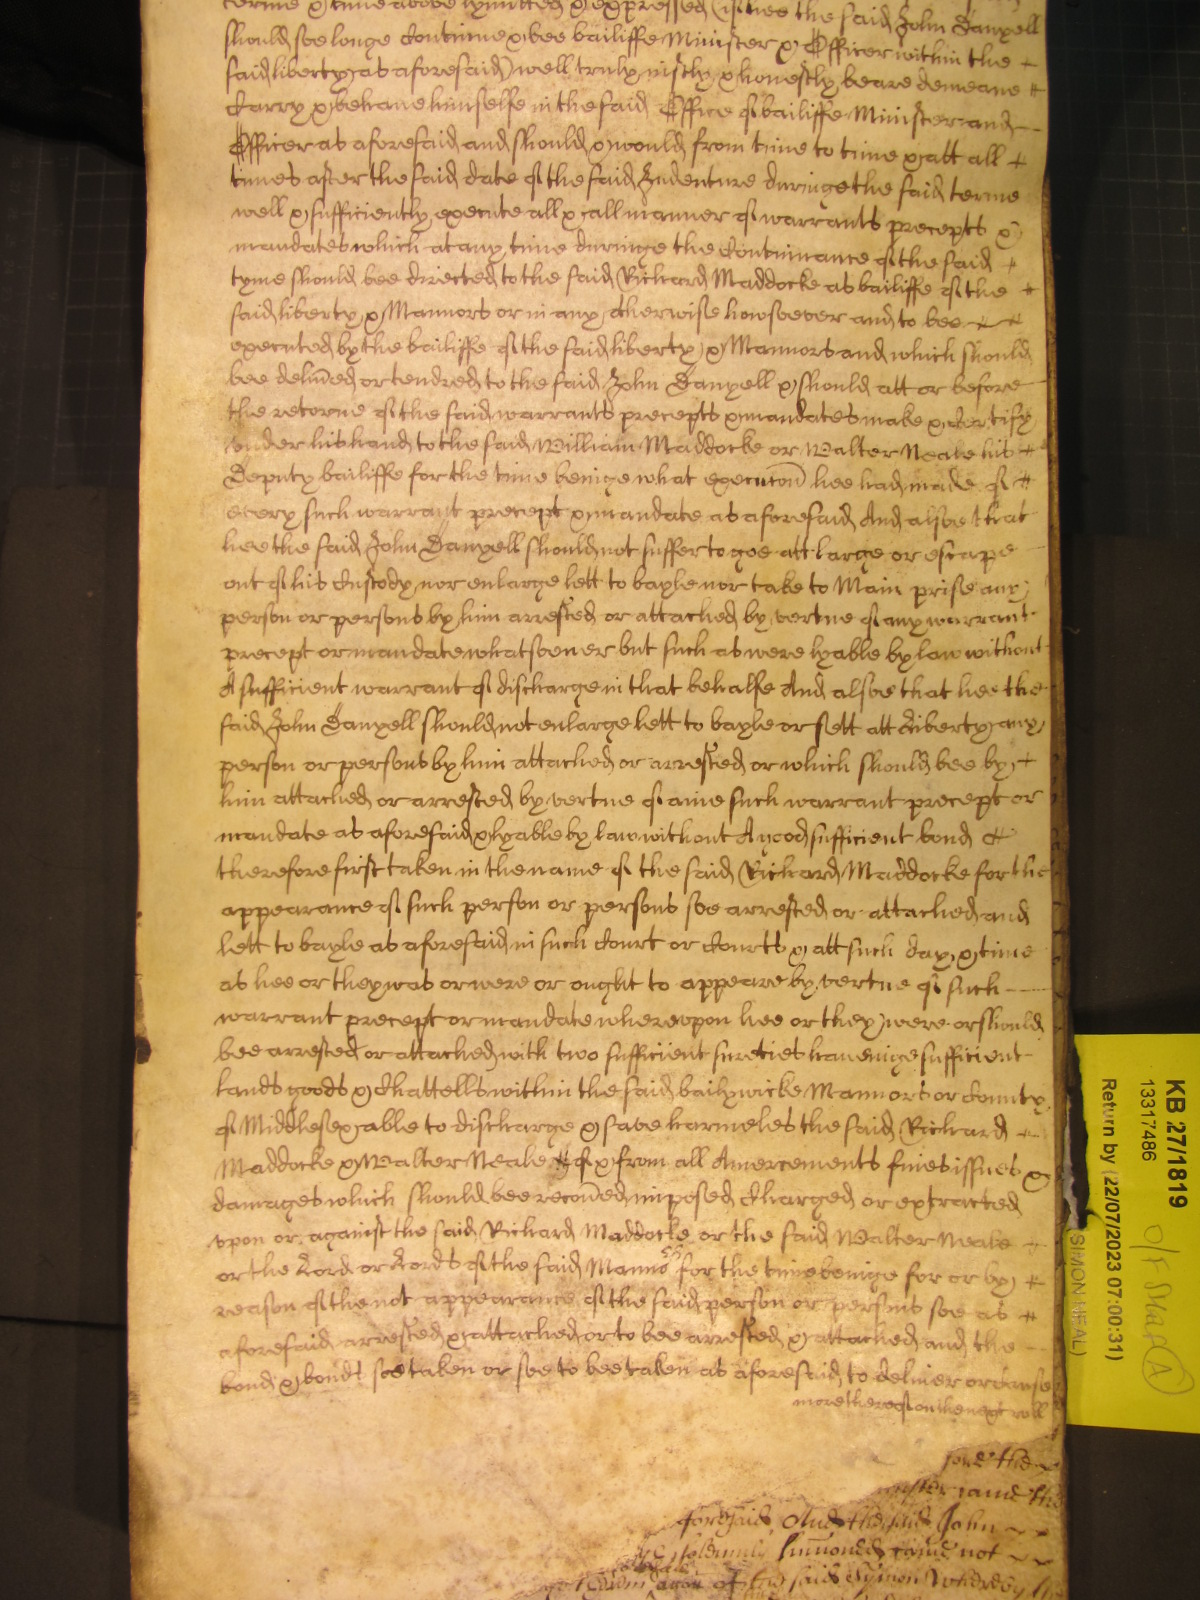 terme & time above lymitted & expressed (if hee the said John Danyell
should soe longe Continue & bee bailiffe Minister & Officer within the
said liberty as aforesaid) well truly iustly & honestly beare demeane
Carry & behaue himselfe in the said Office of bailiffe Minister and
Officer as aforesaid and should & would from time to time & att all
times after the said date of the said Indenture duringe the said terme
well & sufficiently execute all & all manner of warrants precepts &
mandates which at any time duringe the Continuance of the said
tyme should bee directed to the said Richard Maddocke as bailiffe of the
said liberty & Mannors or in any otherwise howsoever and to bee
executed by the bailiffe of the said liberty & Mannors and which should
bee deliv̄ed or tendred to the said John Danyell & should att or before
the retorne of the said warrants precepts & mandates make & Certify
vnder his hand to the said William Maddocke or Walter Neale his
Deputy bailiffe for the time beinge what executoñ hee had made of
every such warrant precept & mandate as aforesaid And alsoe that
hee the said John Danyell should not suffer to goe att large or escape
out of his Custody nor enlarge lett to bayle nor take to Main prise any
person or persons by him arrested or attached by vertue of any warrant
precept or mandate whatsoeuer but such as were lyable by law without
A sufficient warrant of discharge in that behalfe And alsoe that hee the
said John Danyell should not enlarge lett to bayle or sett att Liberty any
person or persons by him attached or arrested or which should bee by
him attached or arrested by vertue of anie such warrant precept or
mandate as aforesaid & lyable by law without A good sufficient bond
therefore first taken in the name of the said Richard Maddocke for the
appearance of such person or persons soe arrested or attached and
lett to bayle as aforesaid in such Court or Courts & att such day & time
as hee or they was or were or ought to appeare by vertue of such
warrant precept or mandate wherevpon hee or they were or should
bee arrested or attached with two sufficient sureties haueinge sufficient
lands goods & Chattells within the said bailywicke Mannors or County
of Middlesex able to discharge & save harmeles the said Richard
Maddocke & Walter Neale of & from all Amercements fines issues &
damages which should bee recov̄ed imposed Charged or extracted
vpon or against the said Richard Maddocke or the said Walter Neale
or the Lord or Lords of the said Mannors for the time beinge for or by
reason of the not appearance of the said person or persons soe as
aforesaid arrested & attached or to bee arrested & attached and the
bond & bonds soe taken or soe to bee taken as aforesaid to deliuer or cause
more thereof on the next roll
the
came the
foresaid And the said John
solemnly sum̄oned came not
of the said Symon
KB 27/1819
13317486
Return by (22/07/2023 07:00:31)
(SIMON NEAL)
O/F Staff A